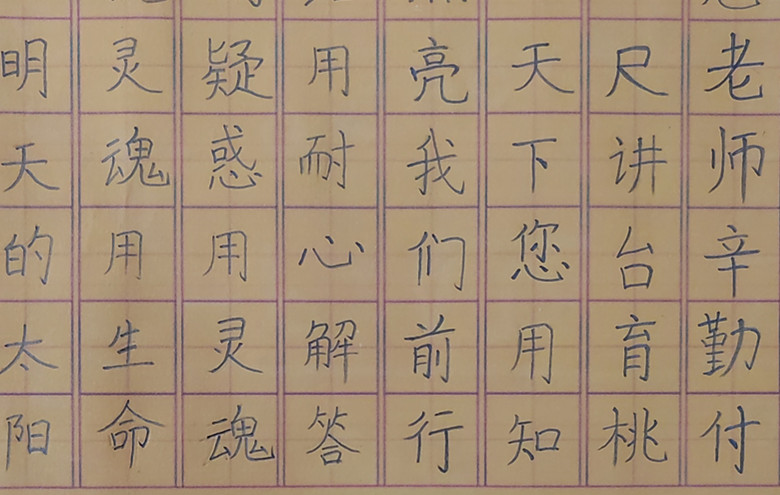 老师辛勤付
尺讲台育桃
天下您用知
亮我们前行
用耐心解答
疑惑用灵魂
灵魂用生命
明天的太阳